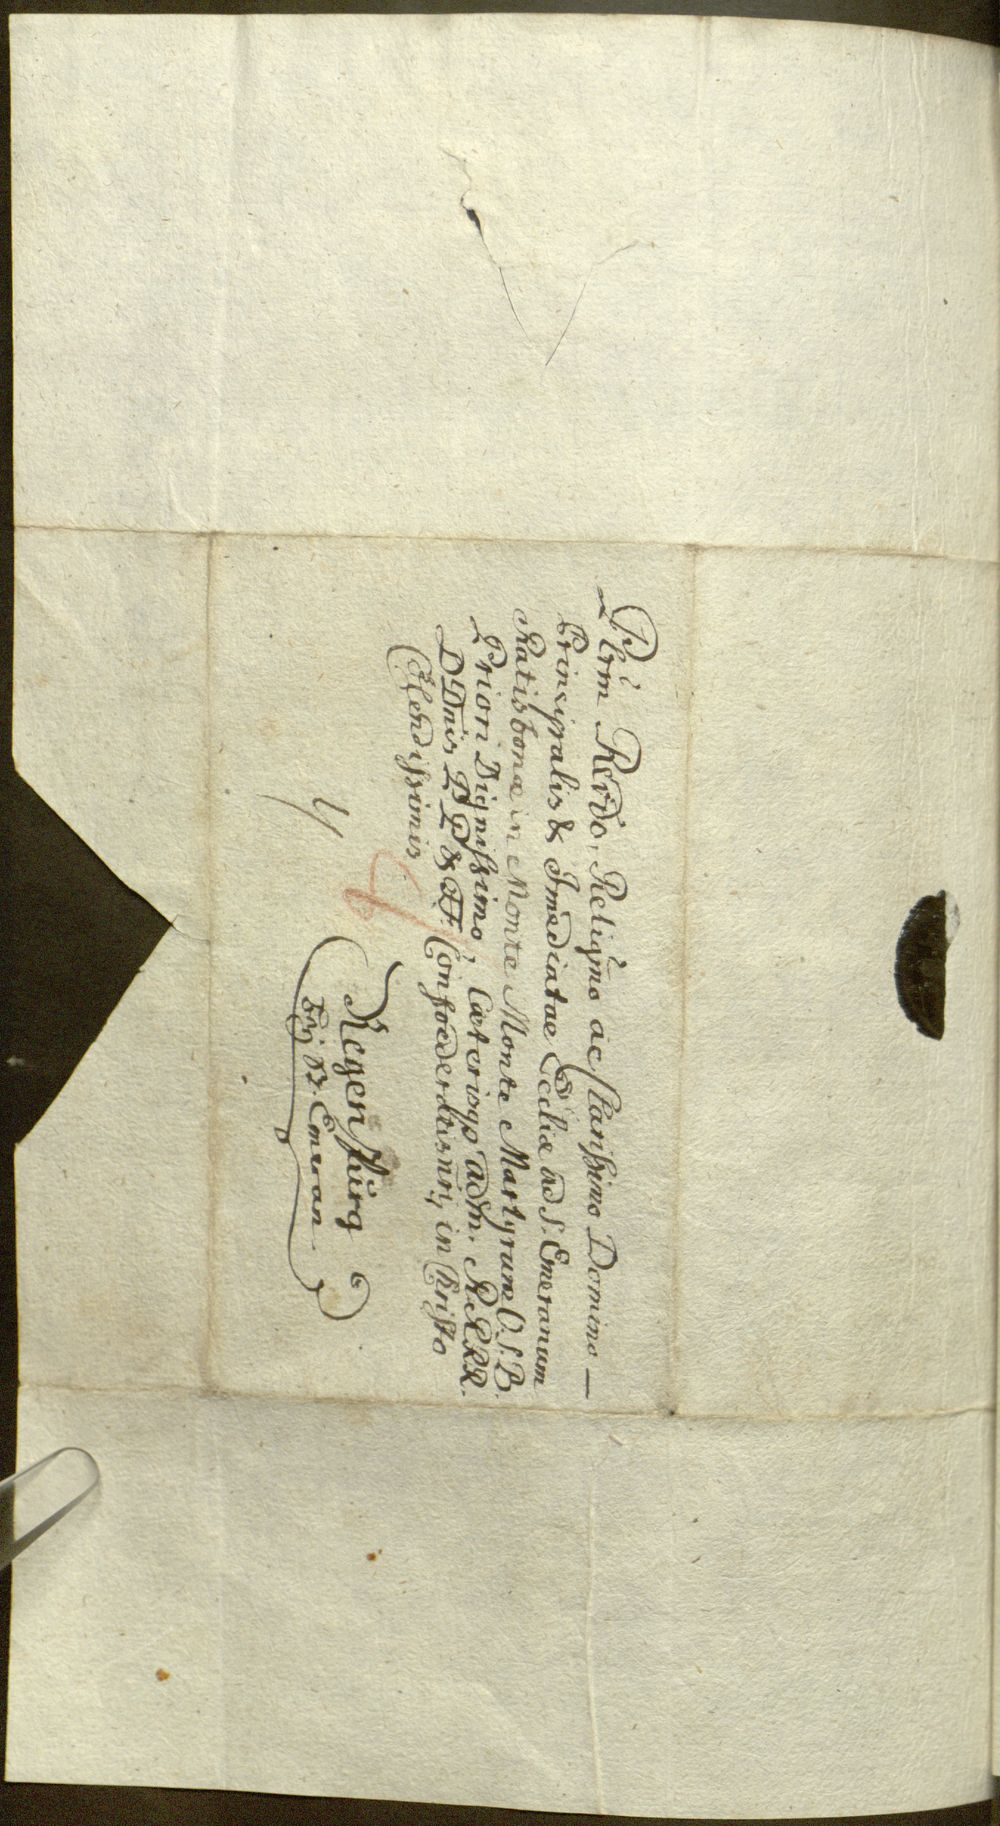 Plrm Rerdo, Religmo ac Clarissimo Domino —
Principalis & Imediatae Eccliæ ad S. Emeranum
Ratisbonæ in Monte Monte Martyrum O.S.B.
Priori Dignissimo Cæterisqs adm. RRRR.
DDnis PP & FF. Confoederatis nris in Christo
Colendissimis
Regenspurg
bej St. Emeran